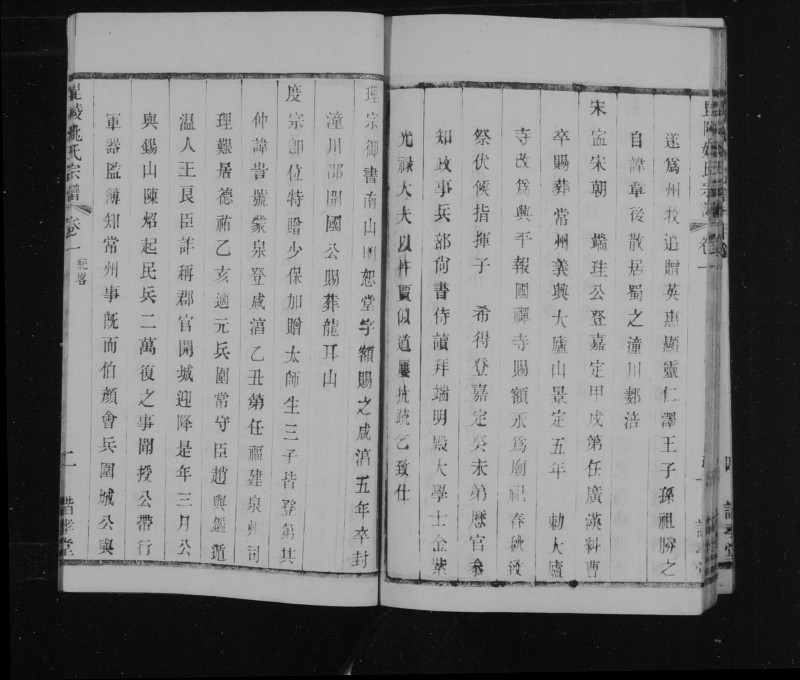 遂爲州牧追贈英惠顯靈仁澤王子孫祖勝之
自諱章後散居蜀之潼川郪浯
宋 寍宋朝 端珪公登嘉定甲戌第任廣漢糾曹
卒賜葬常州義興大廬山景定五年 勅大廬
寺改爲興平報國禪寺賜額永爲廟祀春秋致
祭伏候指揮子 希得登嘉定癸未第歷官叅
知政事兵部尙書侍讀拜端明殿大學士金紫
光祿大夫以忤賈似道屢抗疏乞致仕
理宗御書南山明恕堂字額賜之咸淳五年卒封
潼川郡開國公賜葬龍耳山
度宗卽位特贈少保加贈太師生三子皆登第其
仲諱訔號蒙泉登咸淳乙丑第任福建泉州司
理艱居德祐乙亥適元兵圍常守臣趙與鑑遁
温人王良臣詐稱郡官開城迎降是年三月公
與錫山陳炤起民兵二萬復之事聞授公帶行
軍器監簿知常州事旣而伯顏會兵圍城公與
毘陵姚氏宗譜 卷一 紀畧 二 諧孝堂